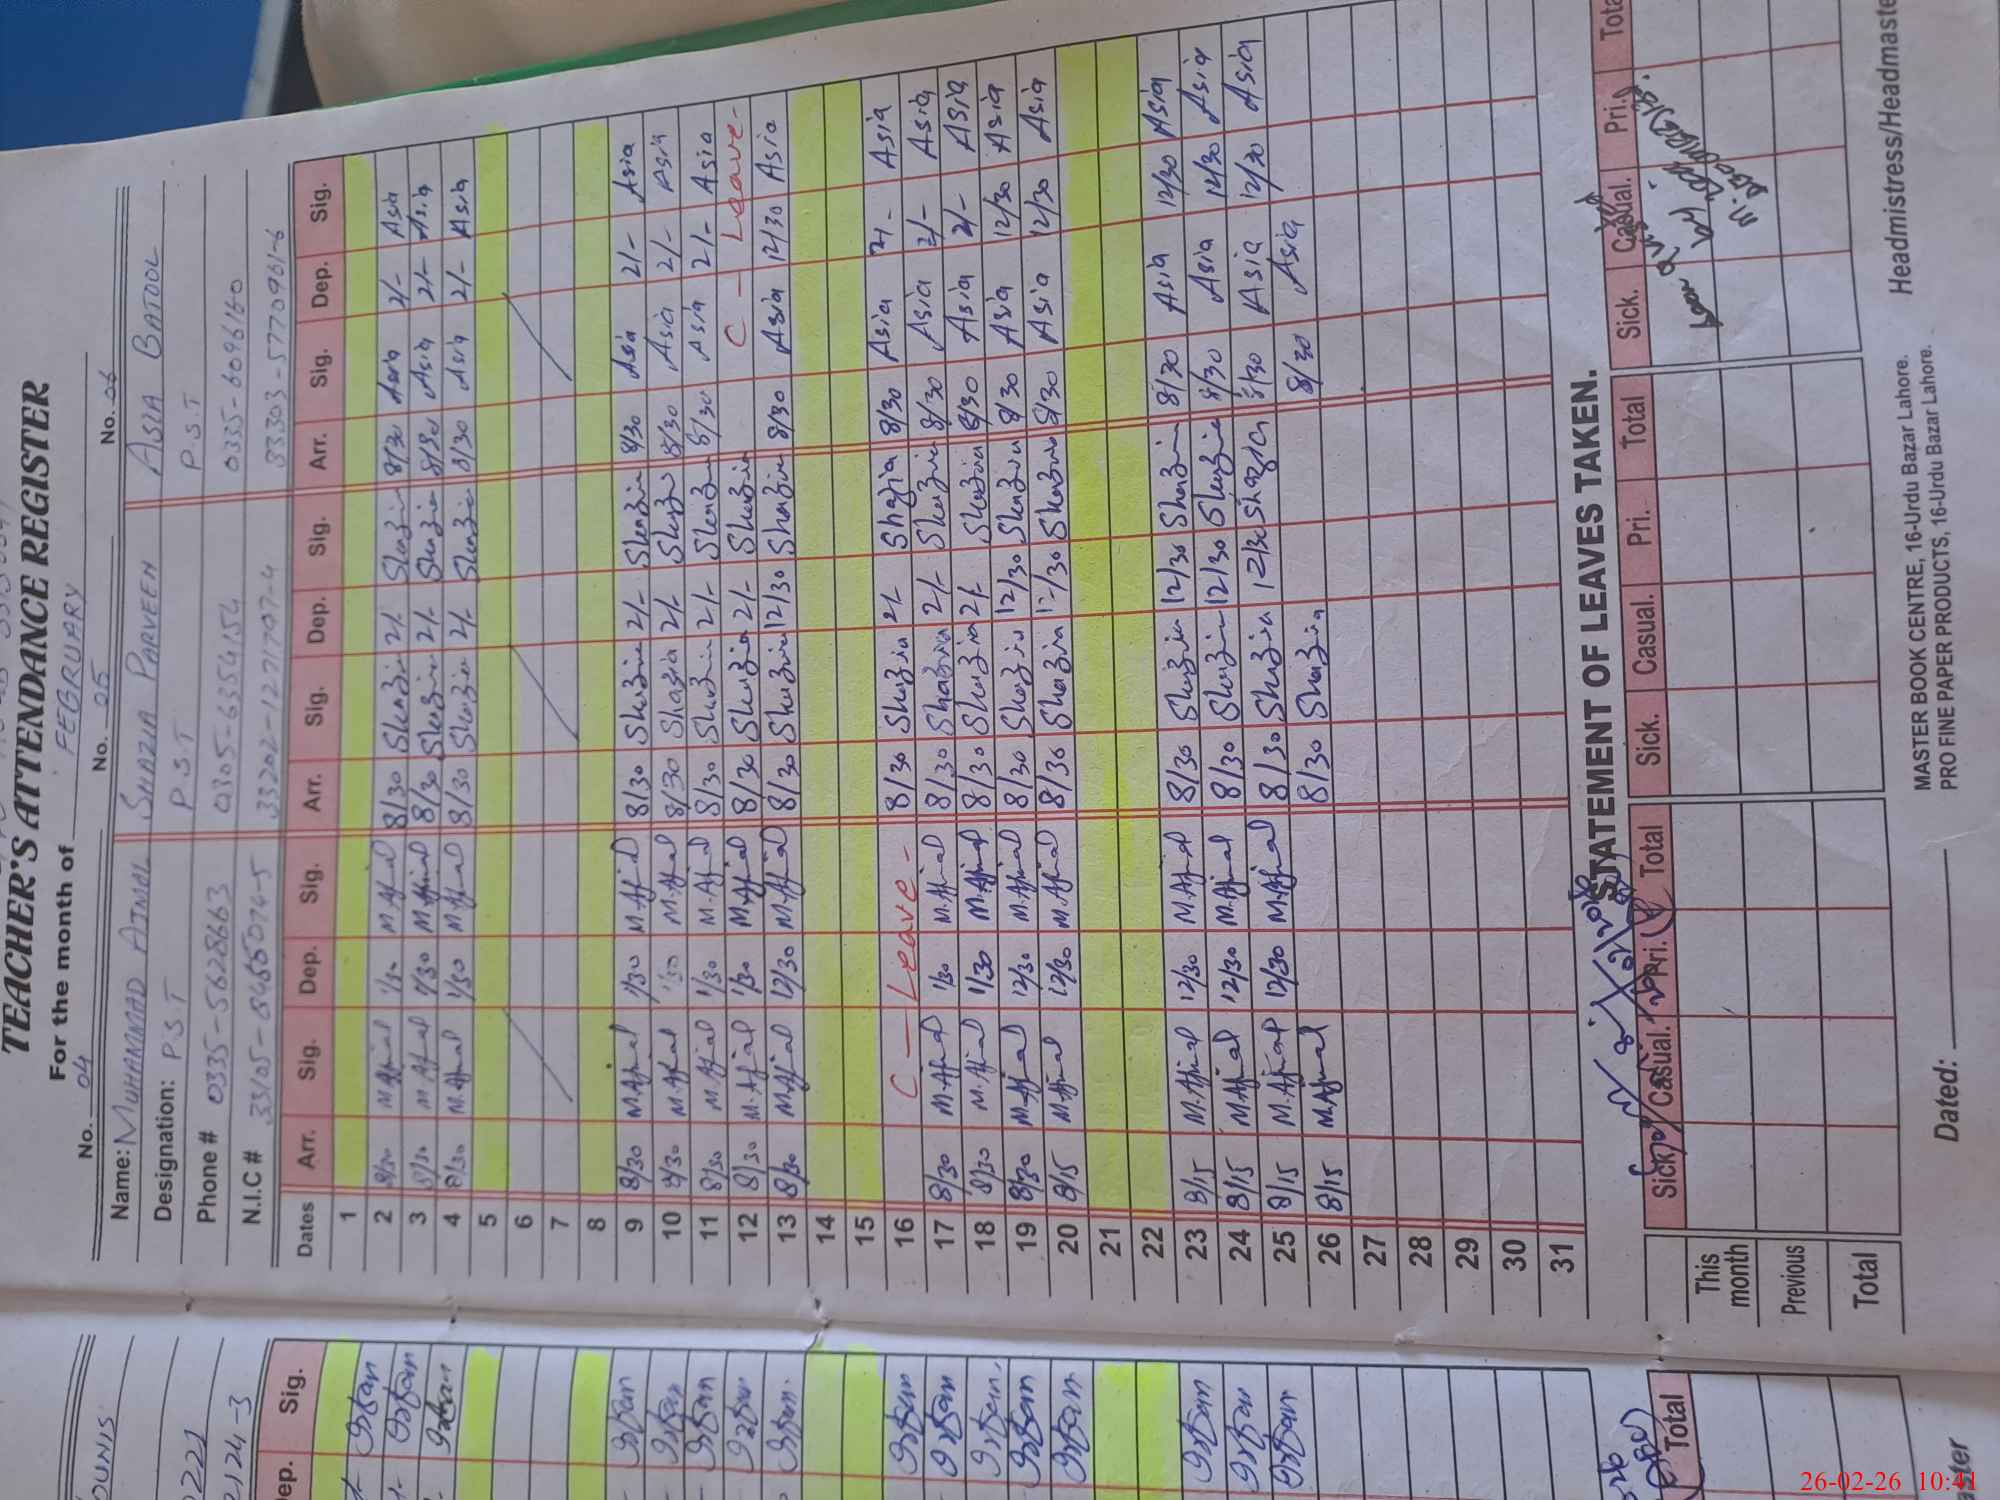 TEACHER'S ATTENDANCE REGISTER
For the month of FEBRUARY
No. 04 No. 05 No. 06
Name: MUHAMMAD AJMAL SHAZIA PARVEEN ASIA BATOOL
Designation: P.S.T P.S.T P.S.T
Phone # 0335-5628663 0305-6354154 0335-6096160
N.I.C # 33105-8485074-5 33202-1271707-4 33303-5770961-6
Dates Arr. Sig. Dep. Sig. Arr. Sig. Dep. Sig. Arr. Sig. Dep. Sig.
1
2 8/30 M.Ajmal 1/30 M.Ajmal 8/30 Shazia 2/- Shazia 8/30 Asia 2/- Asia
3 8/30 M.Ajmal 1/30 M.Ajmal 8/30 Shazia 2/- Shazia 8/30 Asia 2/- Asia
4 8/30 M.Ajmal 1/30 M.Ajmal 8/30 Shazia 2/- Shazia 8/30 Asia 2/- Asia
5
6
7
8
9 8/30 M.Ajmal 1/30 M.Ajmal 8/30 Shazia 2/- Shazia 8/30 Asia 2/- Asia
10 8/30 M.Ajmal 1/30 M.Ajmal 8/30 Shazia 2/- Shazia 8/30 Asia 2/- Asia
11 8/30 M.Ajmal 1/30 M.Ajmal 8/30 Shazia 2/- Shazia 8/30 Asia 2/- Asia
12 8/30 M.Ajmal 1/30 M.Ajmal 8/30 Shazia 2/- Shazia C - Leave -
13 8/30 M.Ajmal 12/30 M.Ajmal 8/30 Shazia 12/30 Shazia 8/30 Asia 12/30 Asia
14
15
16 C - Leave - 8/30 Shazia 2/- Shazia 8/30 Asia 2/- Asia
17 8/30 M.Ajmal 1/30 M.Ajmal 8/30 Shazia 2/- Shazia 8/30 Asia 2/- Asia
18 8/30 M.Ajmal 1/30 M.Ajmal 8/30 Shazia 2/- Shazia 8/30 Asia 2/- Asia
19 8/30 M.Ajmal 12/30 M.Ajmal 8/30 Shazia 12/30 Shazia 8/30 Asia 12/30 Asia
20 8/15 M.Ajmal 12/30 M.Ajmal 8/30 Shazia 12/30 Shazia 8/30 Asia 12/30 Asia
21
22
23 8/15 M.Ajmal 12/30 M.Ajmal 8/30 Shazia 12/30 Shazia 8/30 Asia 12/30 Asia
24 8/15 M.Ajmal 12/30 M.Ajmal 8/30 Shazia 12/30 Shazia 8/30 Asia 12/30 Asia
25 8/15 M.Ajmal 12/30 M.Ajmal 8/30 Shazia 12/30 Shazia 8/30 Asia 12/30 Asia
26 8/15 M.Ajmal 8/30 Shazia 8/30 Asia
27
28
29
30
31
STATEMENT OF LEAVES TAKEN.
Sick. Casual. Pri. Total Sick. Casual. Pri. Total Sick. Casual. Pri. Total
This month
Previous
Total
MASTER BOOK CENTRE, 16-Urdu Bazar Lahore.
PRO FINE PAPER PRODUCTS, 16-Urdu Bazar Lahore.
Dated: Headmistress/Headmaste
OUNIS
0221
0124-3
ep. Sig.
Total
26-02-26 10:41